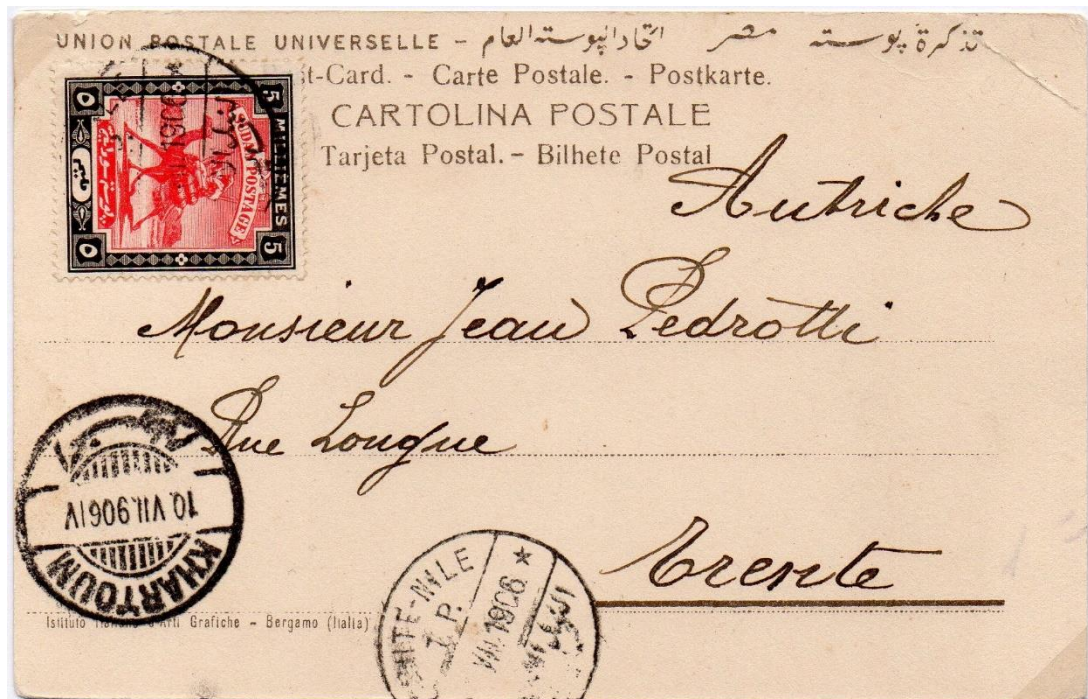 UNION POSTALE UNIVERSELLE – اتحاد البوسته العام مصر تذكرة بوسته
st-Card. - Carte Postale. - Postkarte.
CARTOLINA POSTALE
Tarjeta Postal. – Bilhete Postal
5 MILLIEMES 5
SUDAN POSTAGE
Autriche
Monsieur Jean Pedrotti
Rue Longue
Trente
10.VII.906 IV
KHARTOUM
WHITE-NILE
T. P.
VII 1906
Istituto Italiano d'Arti Grafiche – Bergamo (Italia)